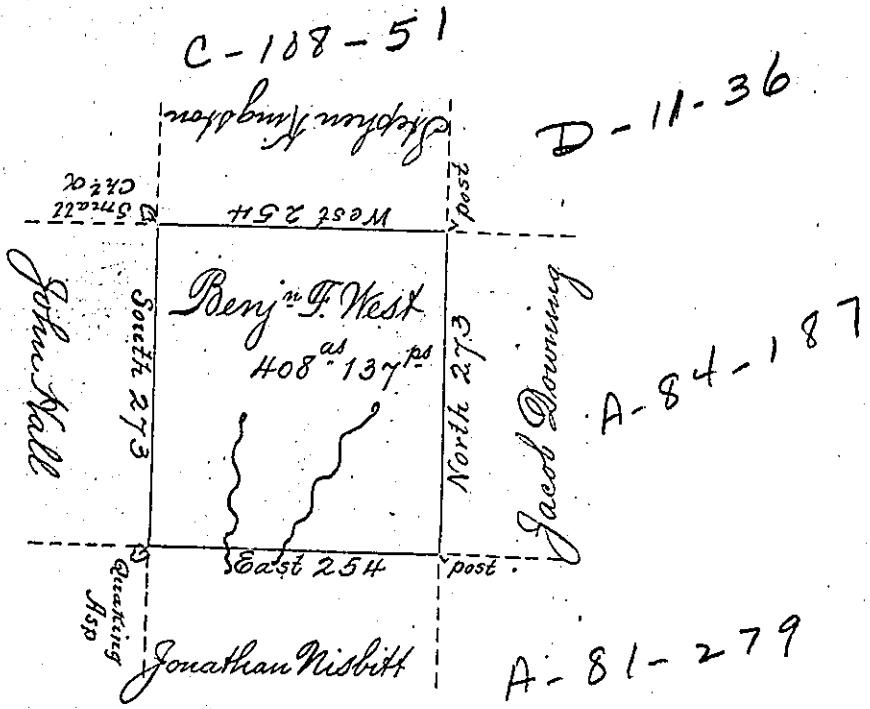 C-108-51
D-11-36
Stephen Kingston
Small
Cht.
West 254
post
John Hall
South 273
Benj.n F. West
408 as 137 ps
North 273
Jacob Downing
A-84-187
Quaking
Asp
East 254
post
Jonathan Nisbitt
A-81-279